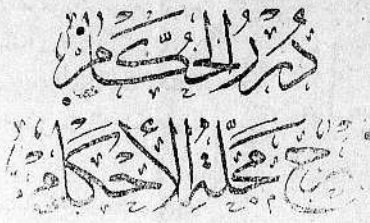 دُرَرُ الحُكَّامِ
شرح مَجَلَّةُ الأَحْكَامِ